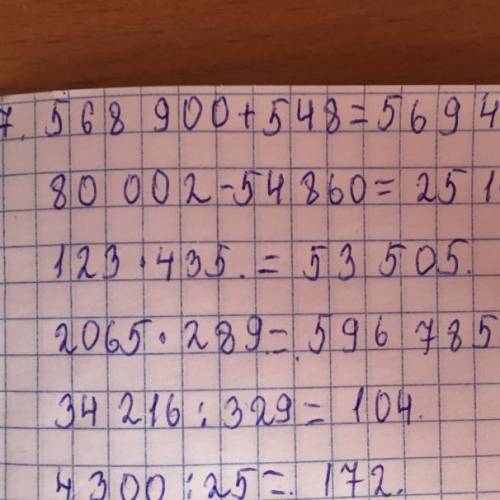 7. 568 900+548=5694
80 002-54 860=251
123·435.=53 505.
2065·289=596 785
34 216:329=104.
4300:25=172.